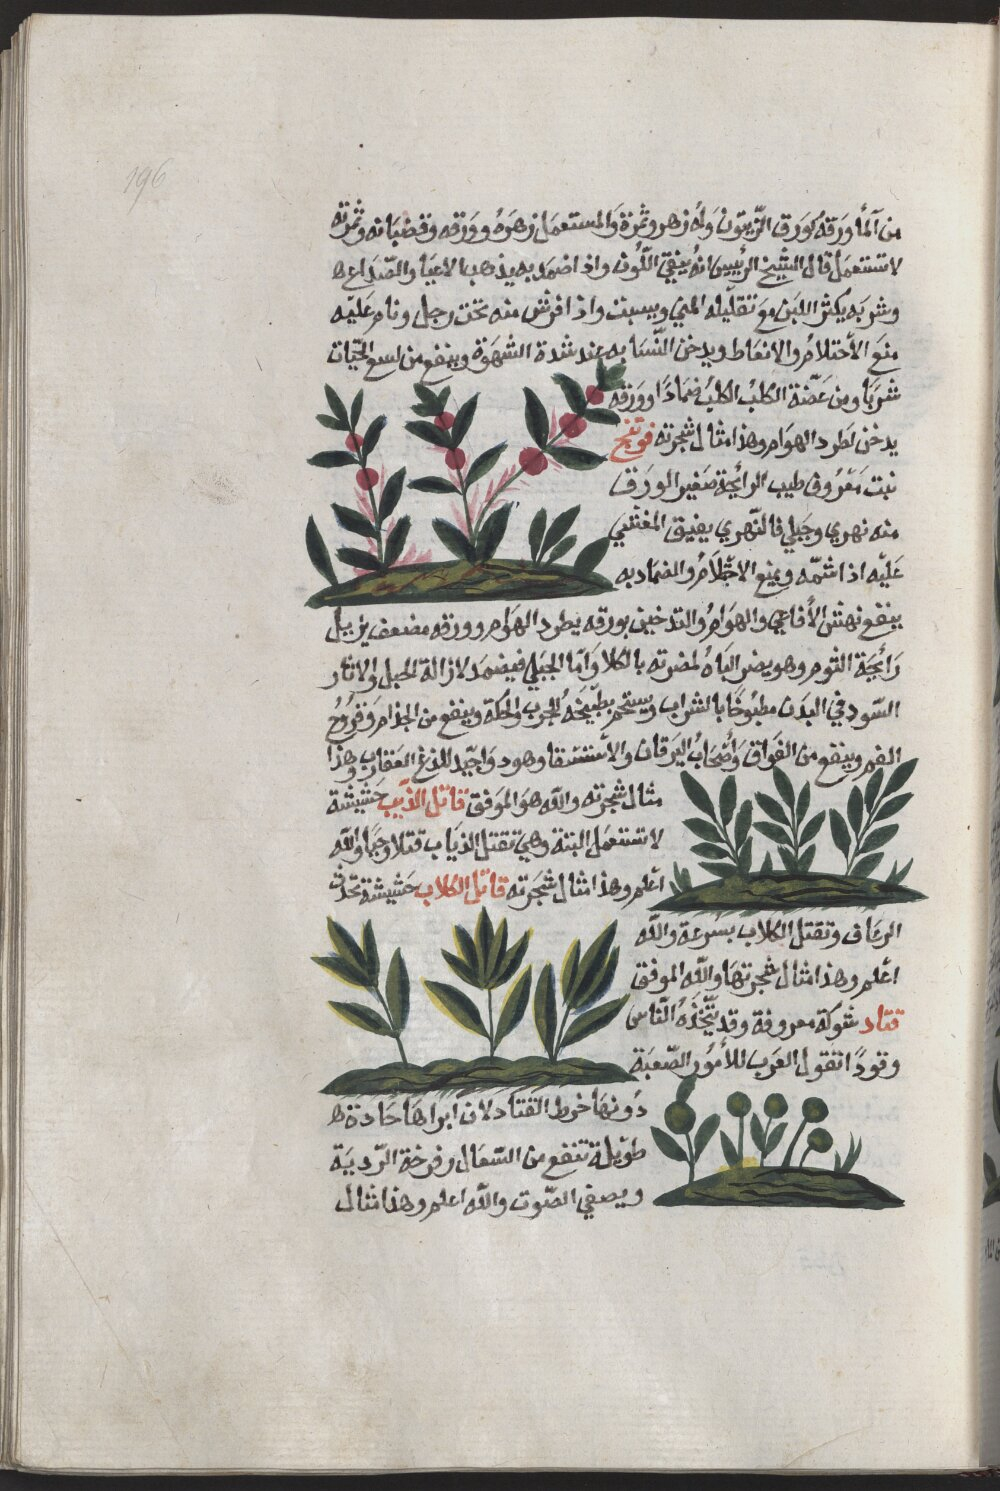 196
من آلمأ ورقه كورق الزيتون وله زهر وثمرة والمستعمل زهره وورقه وقضبانه وثمرته
لا تستعمل قال الشيخ الرئيس انه ينقي اللون واذا ضمد به يذهب بالاعيا والصداع
وشربه يكثر اللبن مع تقليله المني ويسبت واذا افرش منه تحت رجل ونام عليه
منع الأحتلام والانعاط ويدخن النسا به عند شدة الشهوة وينفع من لسع الحيات
شربا ومن عضة الكلب الكلب ضمادا وورقه
يدخن لطرد الهوام وهذا مثال شجرته فوتنج
نبت معروف طيب الرائحة صغير الورق
منه نهري وجبلي فالنهري يفيق المغشي
عليه اذا شمه ويمنع الاحتلام والضماد به
ينفع نهش الأفاعي والهوام والتدخين بورقه يطرد الهوام وورقه مضغف يزيل
رائحة الثوم وهو يضر الباه لمضرته بالكلا وأما الجبلي فيضمد لازالة الحبل والاثار
السود في البدن مطبوخا بالشراب ويستحم بطبيخه للجرب والحكة وينفع من الجذام وقروح
الفم وينفع من الفواق وأصحاب اليرقان والأستسقا وهو دوا جيد للدغ العقارب وهذا
مثال شجرته والله هو الموفق قاتل الذيب حشيشة
لا تستعمل البتة وهي تقتل الذياب قتلا وحيا والله
اعلم وهذا مثال شجرته قاتل الكلاب حشيشة تحدث
الرعاف وتقتل الكلاب بسرعة والله
اعلم وهذا مثال شجرتها والله الموفق
قتاد شوكة معروفة وقد يتخذه الناس
وقودا تقول العرب للأمور الصعبة
دونها خرط القتاد لان ابراها حادة
طويلة تنفع من السعال وقرحة الردية
ويصفي الصوت والله اعلم وهذا مثال